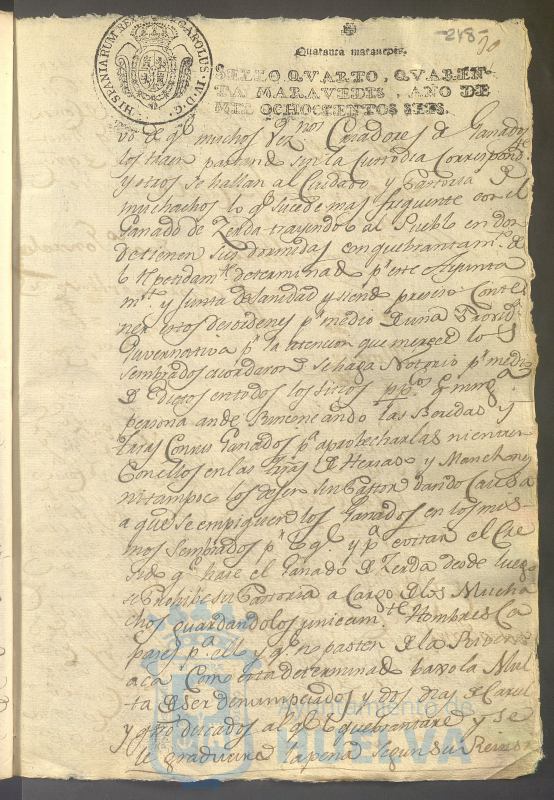 -248-
HISPANIARUM REX CAROLUS IV D.G.
Quarenta maravedis.
SELLO QVARTO, QVAREN-
TA MARAVEDIS, AÑO DE
MIL OCHOCIENTOS SEIS.
vo de q.e muchos Vez.nos Criadores de Ganados
los train pastando sin la Custodia Correspond.te
y otros se hallan al Cuidado y Pastoria de
muchachos lo q.e sucede mas frequente con el
Ganado de Zerda trayendolo al Pueblo en don
de tienen sus dormidas en quebrantam.to de
lo repetidam.te determinado p.r este Ayunta
m.to y Junta de Sanidad y siendo preciso Conte
ner estos desordenes p.r medio de una Provid.a
Guvernativa p.r la atencion que merecen los
sembrados acordaron se haga Notorio p.r medio
de Edictos en todos los sitios pp.cos q.e ning.a
persona ande Rinconeando las Bordas y
Con sus Ganados p.a aprobecharlas ni entren
Con ellos en las de Herrasa y Manchones
ni tampoco los dejen sin Pastor dando Causa
a que se empiquen los Ganados en los mis
mos sembrados p.r q.e y p.a evitar el
q.e hase el Ganado de Zerda desde luego
se Prohibe su Pastoria a Cargo de los Mucha
chos guardandolos unicam.te Hombres Ca
paces p.a ello y q.e no pasten de la Rivera
aca Como esta determinado baxo la Mul
ta de ser denunciados y dos dias de Carcel
y quatro Ducados al q.e lo quebrantare y se
le graduara la pena segun su Reinsi
Ayuntamiento de
HUELVA